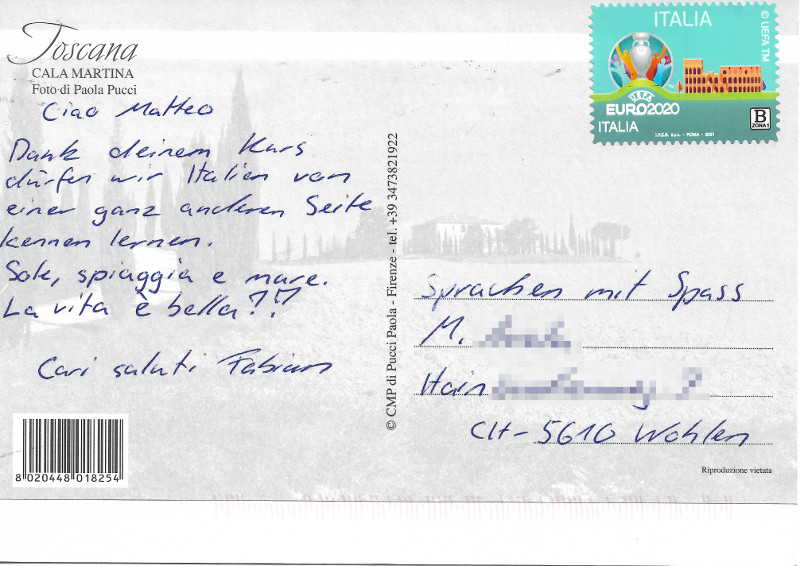 Toscana
CALA MARTINA
Foto di Paola Pucci
Ciao Matteo
Dank deinem Kurs
dürfen wir Italien von
einer ganz anderen Seite
kennen lernen.
Sole, spiaggia e mare.
La vita è bella!!
Cari saluti Fabian
8 020448 018254
© CMP di Pucci Paola - Firenze - tel. +39 3473821922
ITALIA
© UEFA TM
UEFA
EURO2020
ITALIA
I.P.Z.S. S.p.A. - ROMA - 2021
B
ZONA 1
Sprachen mit Spass
M.
Hain
CH-5610 Wohlen
Riproduzione vietata